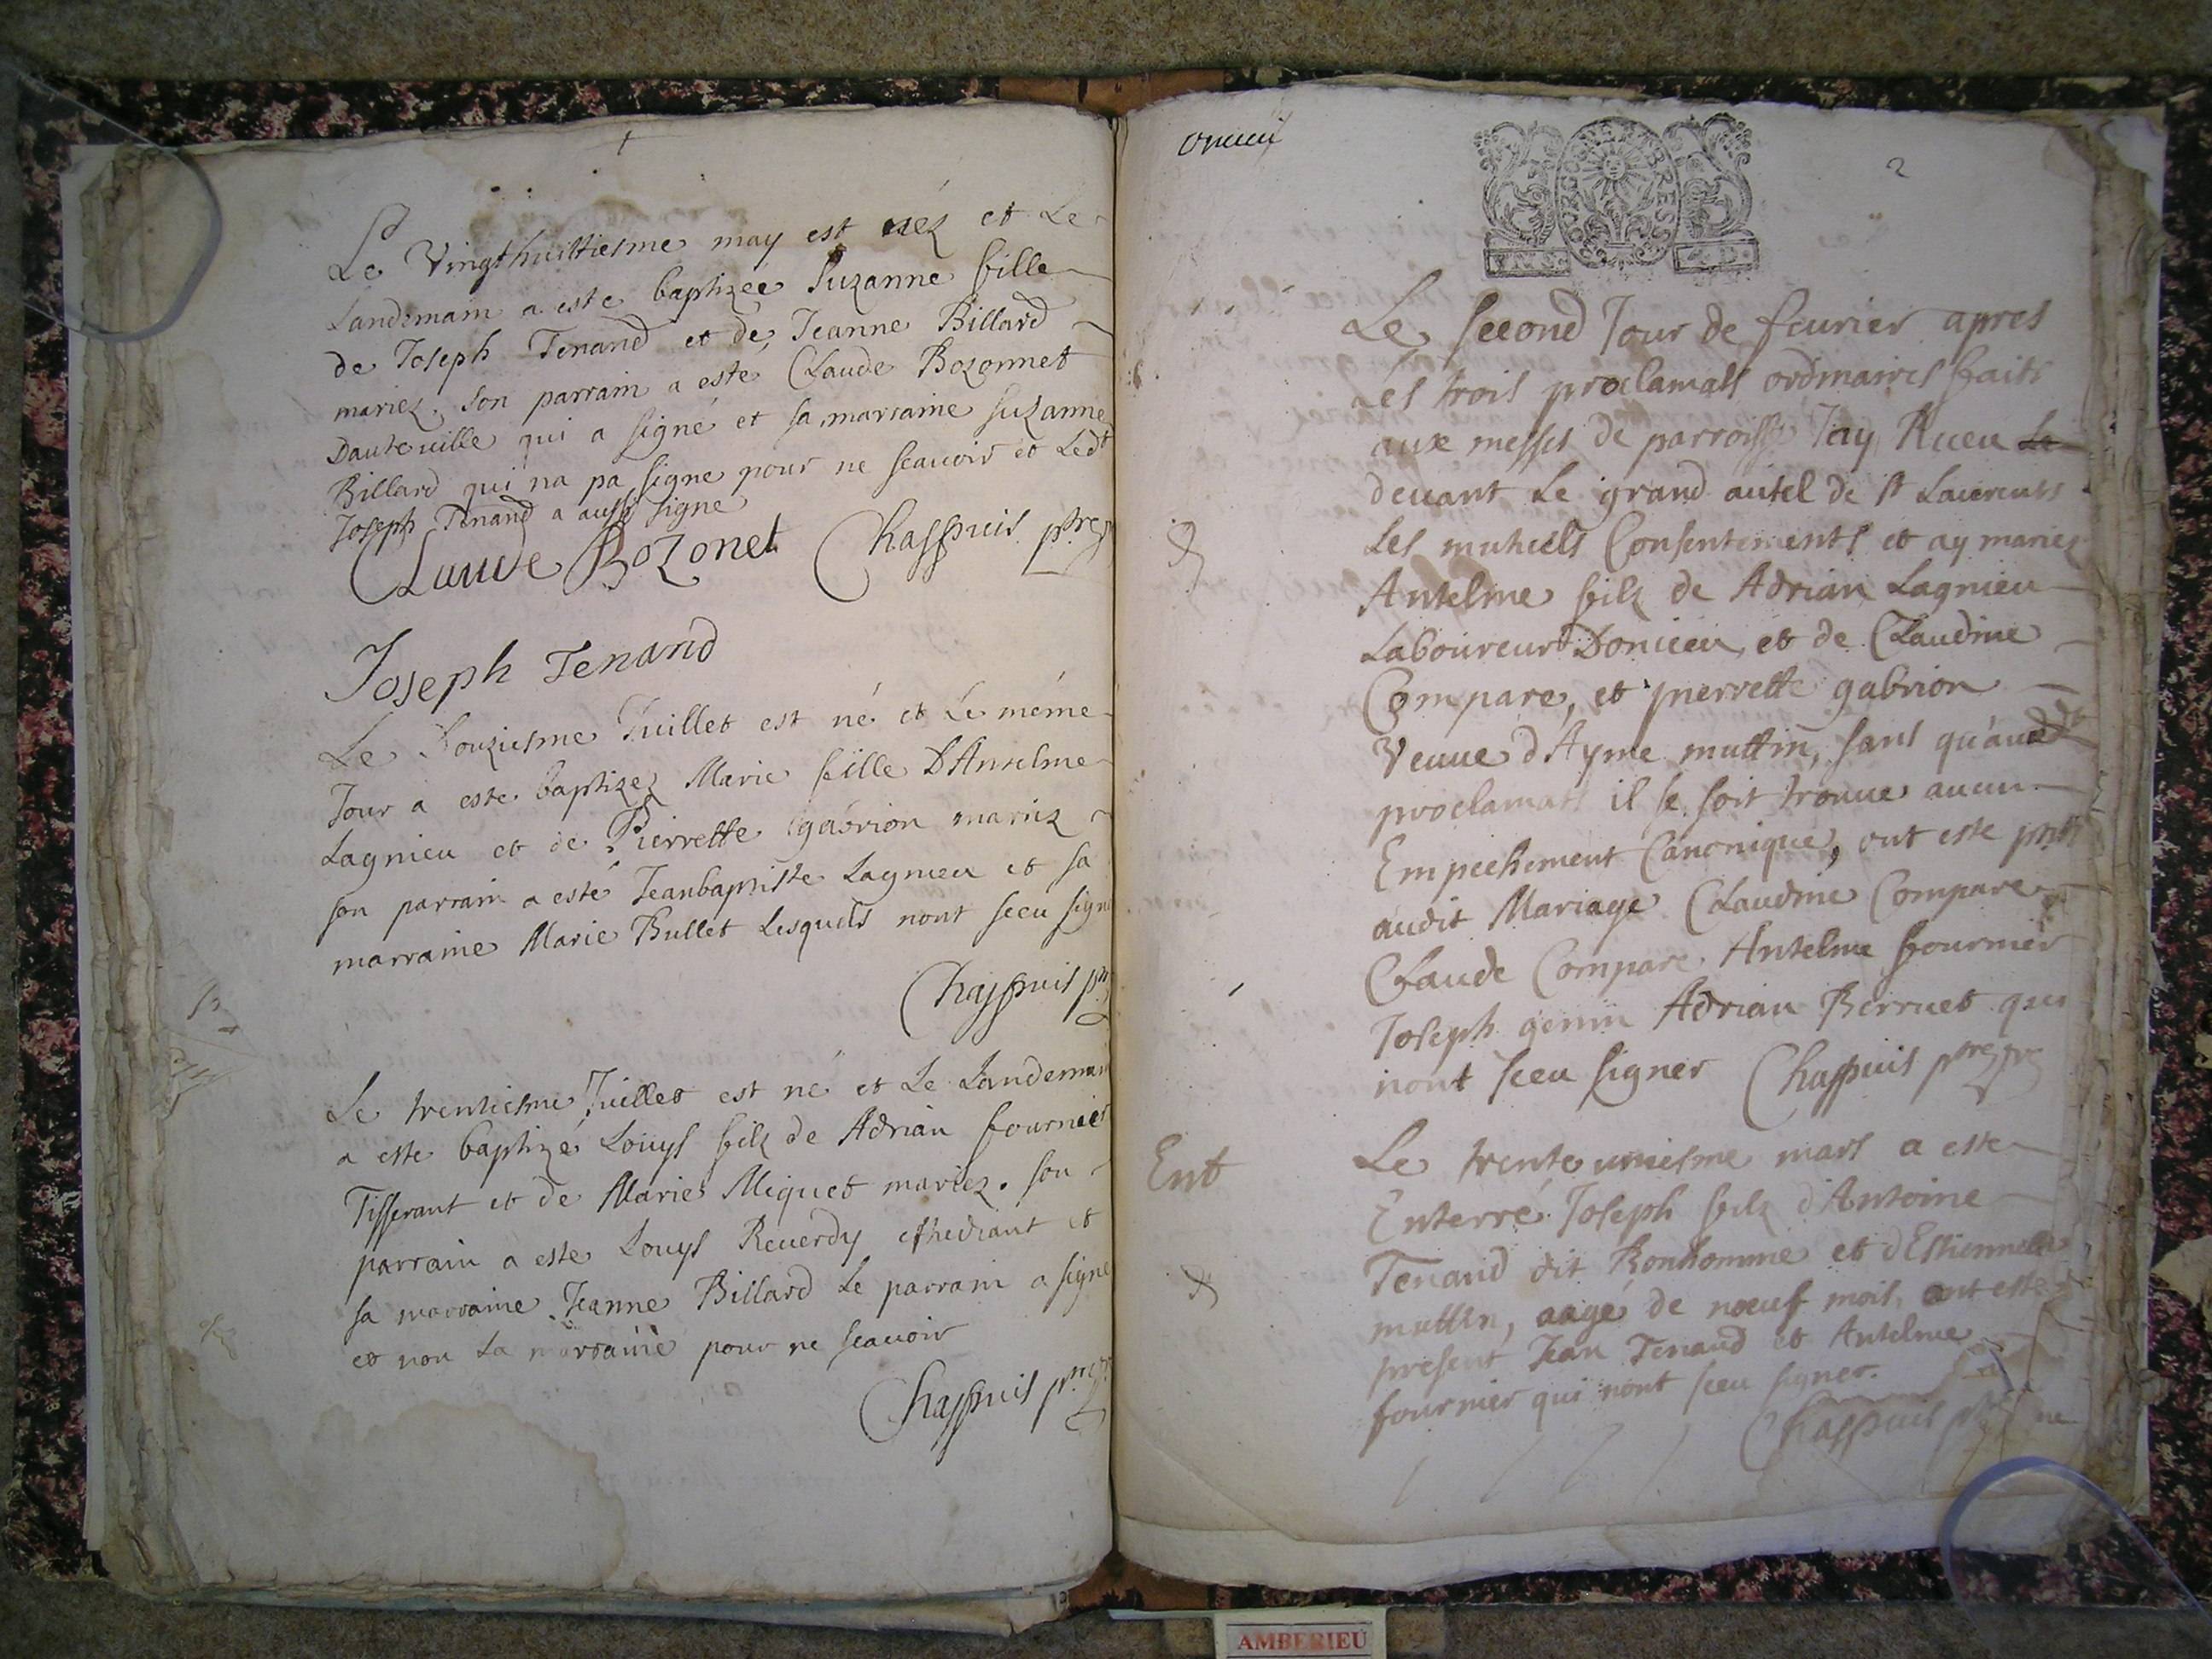 Le Vingthuittiesme may est nez et Le
Landemain a este baptizée Suzanne fille
de Joseph Tenand et de Jeanne Billard
mariez, son parrain a esté Claude Bozonnet
Dauteville qui a signé et sa marraine Suzanne
Billard qui na pa signe pour ne scavoir et Ledt
Joseph Tenand a aussi signe
Claude Bozonet Chappuis ptre
Joseph Tenand
Le Douziesme Juillet est né et Le même
Jour a este baptizez Marie fille D'Antelme
Lagnieu et de Pierrette gabrion mariez
son parrain a esté Jeanbaptiste Lagnieu et sa
marraine Marie Bullet Lesquels nont sceu signe
Chappuis ptre
Le trentiesme Juillet est né et Le Landemain
a este baptizé Louys filz de Adrian fournier
Tisserant et de Marie Miguet mariez. son
parrain a este Louys Reverdy ethediant et
sa marraine Jeanne Billard Le parrain a signe
et non La marraine pour ne scavoir
Chappuis ptre
oncieu
2
BOVRGO BRES
Le second Jour de fevrier apres
Les trois proclamats ordinaires faits
aux messes de parroisse Jay Receu Le
devant Le grand autel de St Laurents
Les mutuels Consentements et ay mariez
Antelme filz de Adrian Lagnieu
Laboureur Doncieu et de Claudine
Compare, et pierrette gabrion
Veuve d'Ayme muttin, sans qu'aux dt
proclamats il se soit trouve aucun
Empechement Canonique, ont este pnts
audit Mariage Claudine Compare
Claude Compare Antelme fournier
Joseph genin Adrian Berruet qui
nont sceu signer Chappuis ptre
Ent
Le trente uniesme mars a este
Enterré Joseph filz d'Antoine
Tenand dit Bonhomme et d'Estiennette
muttin, aagé de noeuf mois, ont este
present Jean Tenand et Antelme
fournier qui nont sceu signer.
Chappuis ptre
AMBERIEU